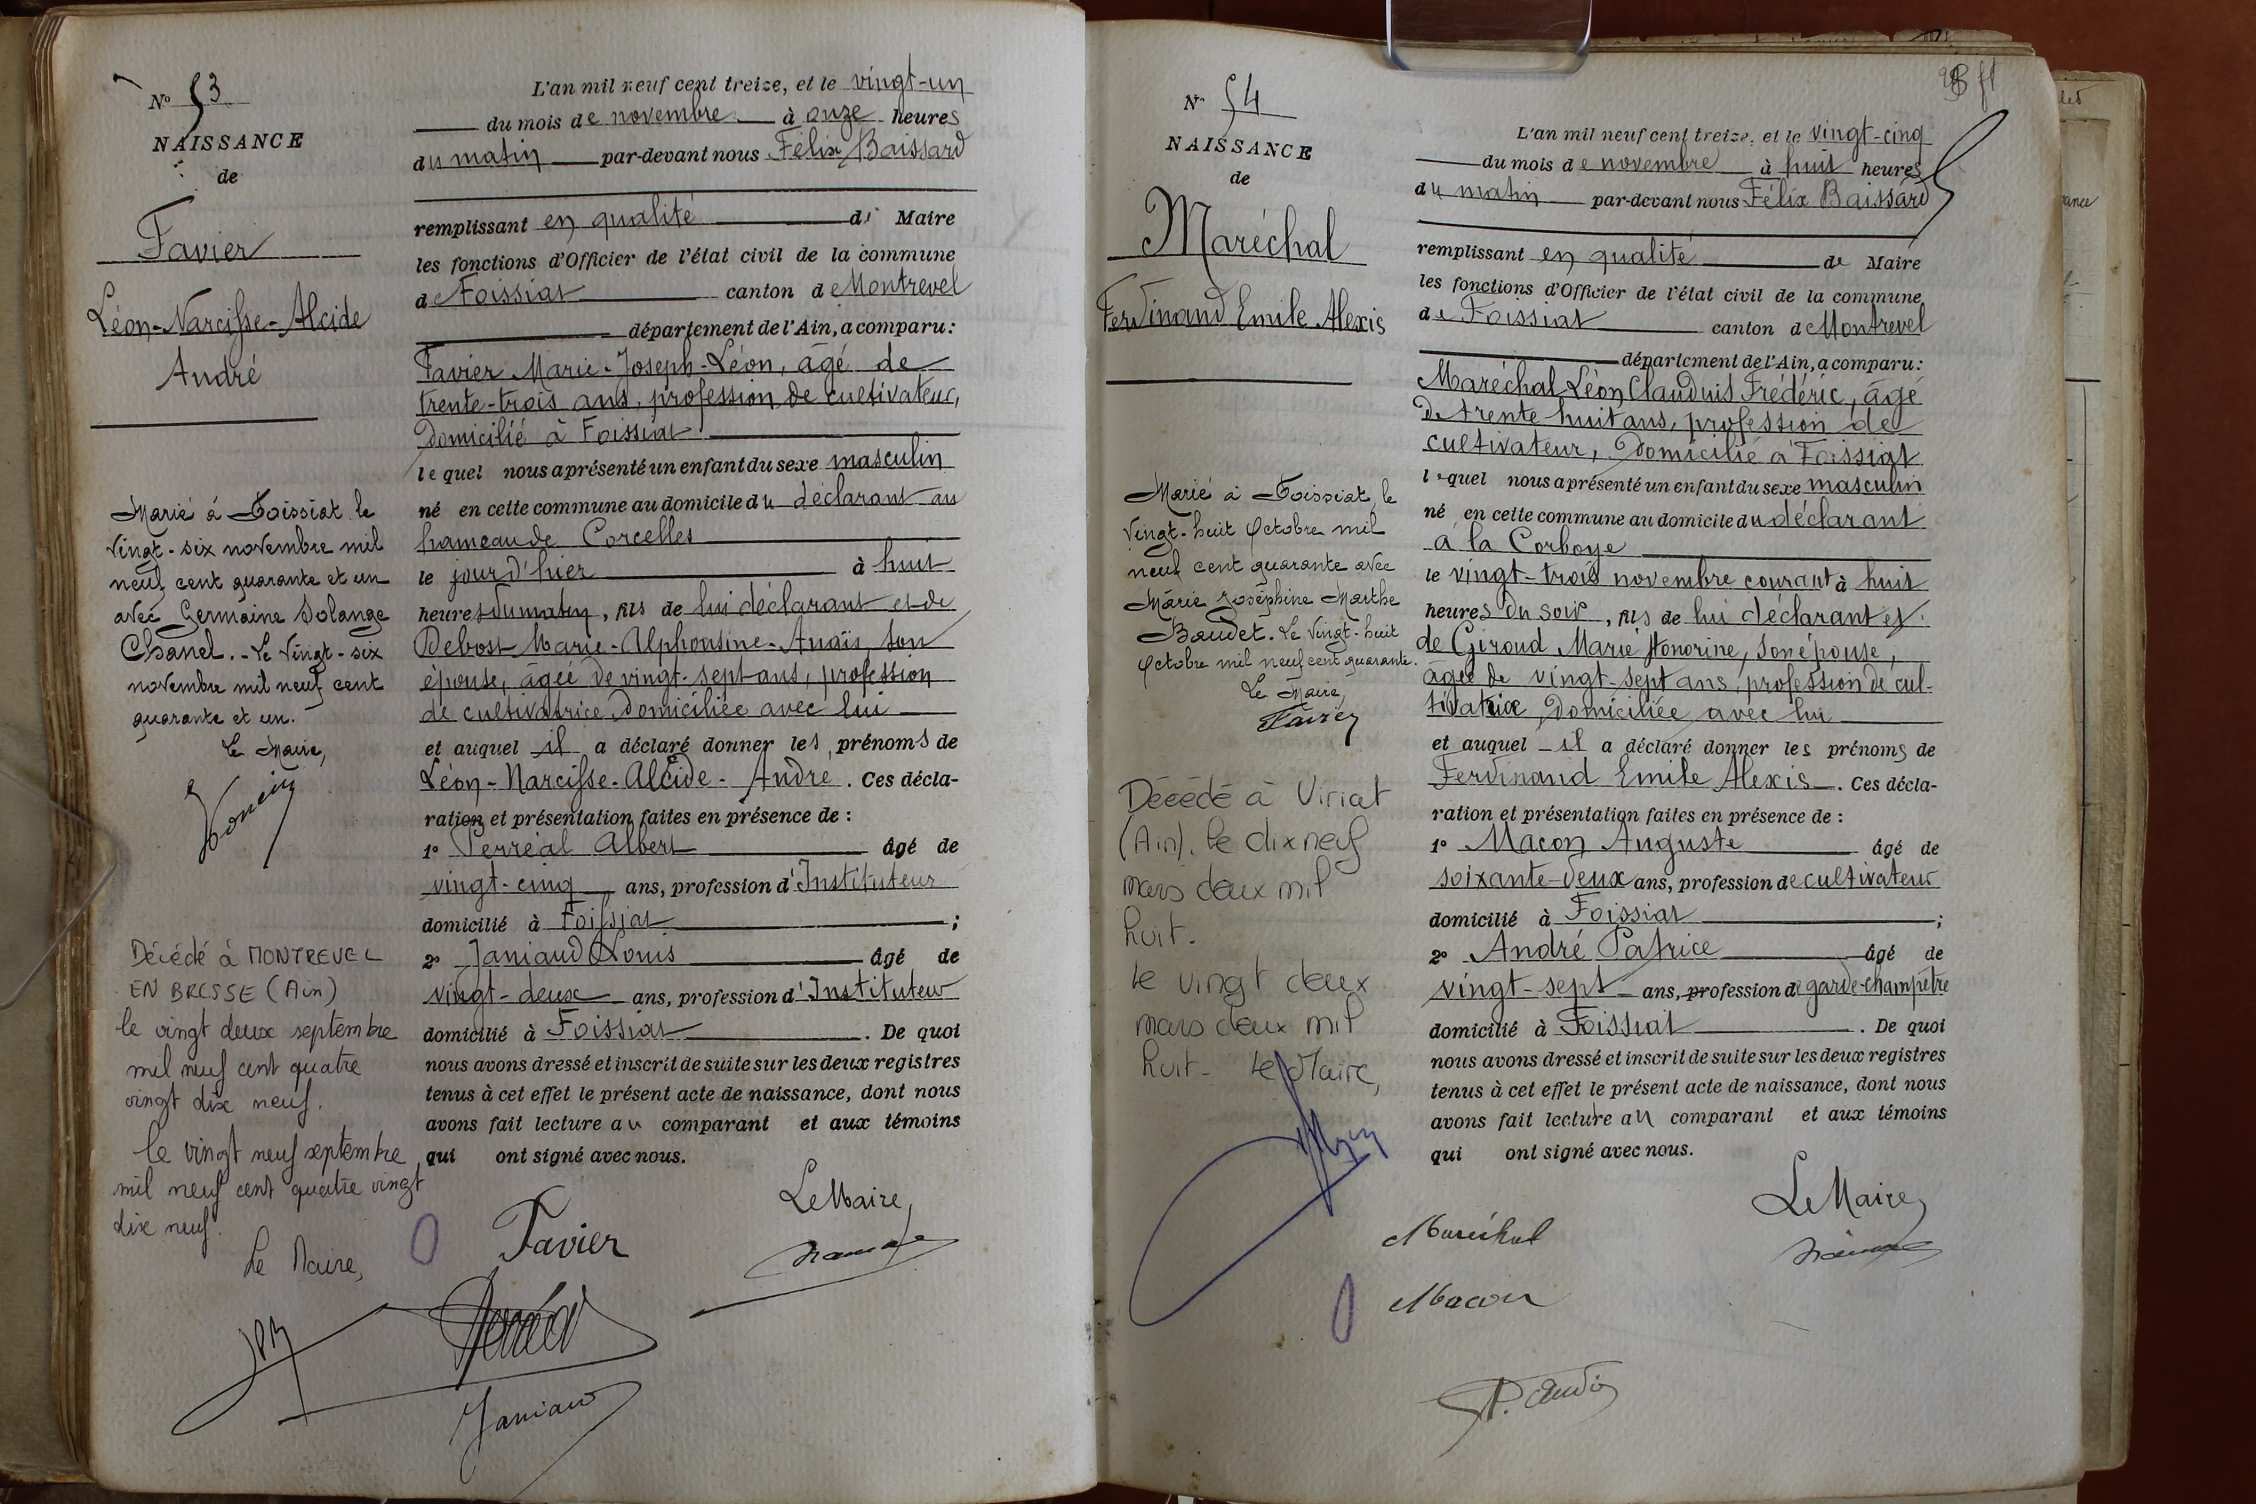 N° 53
NAISSANCE
de
Favier
Léon-Narcisse-Alcide
André
Marié à Foissiat le
vingt-six novembre mil
neuf cent quarante et un
avec Germaine Solange
Chanel. - Le vingt-six
novembre mil neuf cent
quarante et un.
Le Maire,
Décédé à MONTREVEL
EN BRESSE (Ain)
le vingt deux septembre
mil neuf cent quatre
vingt dix neuf.
le vingt neuf septembre
mil neuf cent quatre vingt
dix neuf.
Le Maire,
L'an mil neuf cent treize, et le vingt-un
du mois de novembre à onze heures
du matin par-devant nous Félix Baissard
remplissant en qualité de Maire
les fonctions d'Officier de l'état civil de la commune
de Foissiat canton de Montrevel
département de l'Ain, a comparu:
Favier Marie-Joseph-Léon, âgé de
trente-trois ans, profession de cultivateur,
domicilié à Foissiat
lequel nous a présenté un enfant du sexe masculin
né en cette commune au domicile du déclarant au
hameau de Corcelles
le jour d'hier à huit
heures du matin, fils de lui déclarant et de
Debost Marie-Alphonsine-Anaïs, son
épouse, âgée de vingt-sept ans, profession
de cultivatrice, domiciliée avec lui
et auquel il a déclaré donner les prénoms de
Léon-Narcisse-Alcide-André. Ces décla-
ration et présentation faites en présence de :
1° Perréal Albert âgé de
vingt-cinq ans, profession d'Instituteur
domicilié à Foissiat ;
2° Janiaud Louis âgé de
vingt-deux ans, profession d'Instituteur
domicilié à Foissiat . De quoi
nous avons dressé et inscrit de suite sur les deux registres
tenus à cet effet le présent acte de naissance, dont nous
avons fait lecture au comparant et aux témoins
qui ont signé avec nous.
Le Maire,
Favier
Janiaud
N° 54
NAISSANCE
de
Maréchal
Ferdinand Emile Alexis
Marié à Foissiat, le
vingt-huit Octobre mil
neuf cent quarante avec
Marie Joséphine Marthe
Baudet. Le vingt-huit
Octobre mil neuf cent quarante.
Le Maire,
Décédé à Viriat
(Ain). le dix neuf
mars deux mil
huit.
le vingt deux
mars deux mil
huit - Le Maire,
L'an mil neuf cent treize, et le vingt-cinq
du mois de novembre à huit heures
du matin par-devant nous Félix Baissard
remplissant en qualité de Maire
les fonctions d'Officier de l'état civil de la commune
de Foissiat canton de Montrevel
département de l'Ain, a comparu:
Maréchal Léon Claudius Frédéric, âgé
de trente huit ans, profession de
cultivateur, domicilié à Foissiat
lequel nous a présenté un enfant du sexe masculin
né en cette commune au domicile du déclarant
à la Corboye
le vingt-trois novembre courant à huit
heures du soir, fils de lui déclarant et
de Giroud Marie Honorine, son épouse,
âgée de vingt-sept ans, profession de cul-
tivatrice, domiciliée avec lui
et auquel il a déclaré donner les prénoms de
Ferdinand Emile Alexis. Ces décla-
ration et présentation faites en présence de :
1° Macon Auguste âgé de
soixante-deux ans, profession de cultivateur
domicilié à Foissiat ;
2° André Patrice âgé de
vingt-sept ans, profession de garde-champêtre
domicilié à Foissiat . De quoi
nous avons dressé et inscrit de suite sur les deux registres
tenus à cet effet le présent acte de naissance, dont nous
avons fait lecture au comparant et aux témoins
qui ont signé avec nous.
Le Maire,
Maréchal
Macon